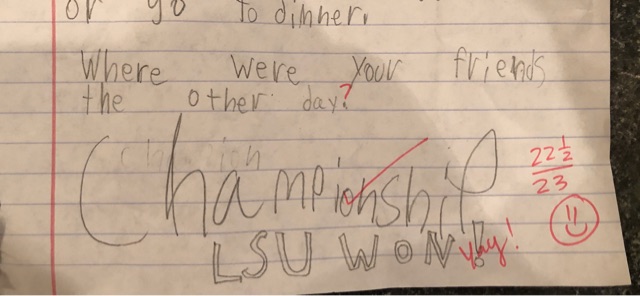 or go to dinner.
Where were your friends
the other day?
Champion
Championship
22 1/2
23
LSU WON!
Yay!